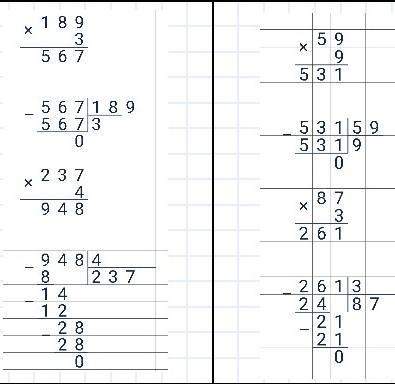 × 189
3
567
− 567 189
567 3
0
× 237
4
948
− 948 4
8 237
− 14
12
− 28
28
0
× 59
9
531
− 531 59
531 9
0
× 87
3
261
− 261 3
24 87
− 21
21
0